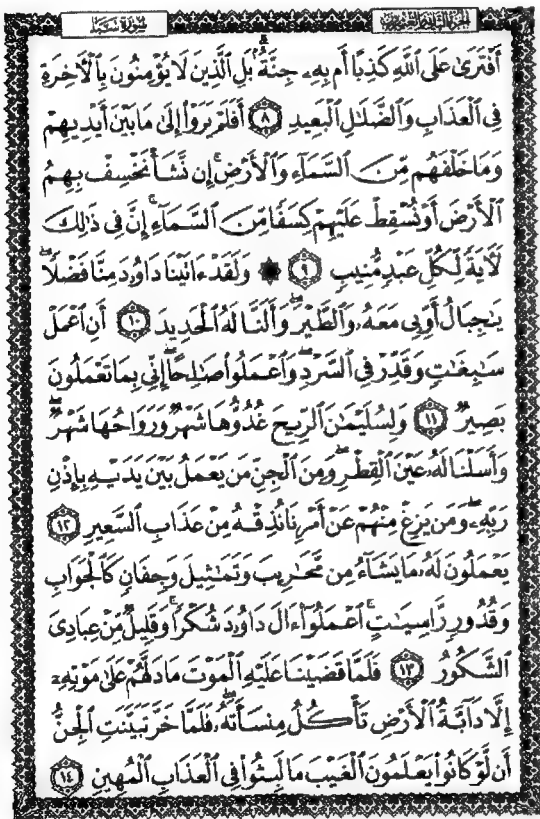 الجزء الثاني والعشرون
سورة سبإ
أَفْتَرَىٰ عَلَى ٱللَّهِ كَذِبًا أَم بِهِۦ جِنَّةٌۢ بَلِ ٱلَّذِينَ لَا يُؤْمِنُونَ بِٱلْءَاخِرَةِ
فِى ٱلْعَذَابِ وَٱلضَّلَٰلِ ٱلْبَعِيدِ ٨ أَفَلَمْ يَرَوْا۟ إِلَىٰ مَا بَيْنَ أَيْدِيهِمْ
وَمَا خَلْفَهُم مِّنَ ٱلسَّمَآءِ وَٱلْأَرْضِ ۚ إِن نَّشَأْ نَخْسِفْ بِهِمُ
ٱلْأَرْضَ أَوْ نُسْقِطْ عَلَيْهِمْ كِسَفًا مِّنَ ٱلسَّمَآءِ ۚ إِنَّ فِى ذَٰلِكَ
لَءَايَةً لِّكُلِّ عَبْدٍ مُّنِيبٍ ٩ ۞ وَلَقَدْ ءَاتَيْنَا دَاوُۥدَ مِنَّا فَضْلًا ۖ
يَٰجِبَالُ أَوِّبِى مَعَهُۥ وَٱلطَّيْرَ ۖ وَأَلَنَّا لَهُ ٱلْحَدِيدَ ١٠ أَنِ ٱعْمَلْ
سَٰبِغَٰتٍ وَقَدِّرْ فِى ٱلسَّرْدِ ۖ وَٱعْمَلُوا۟ صَٰلِحًا ۖ إِنِّى بِمَا تَعْمَلُونَ
بَصِيرٌ ١١ وَلِسُلَيْمَٰنَ ٱلرِّيحَ غُدُوُّهَا شَهْرٌ وَرَوَاحُهَا شَهْرٌ ۖ
وَأَسَلْنَا لَهُۥ عَيْنَ ٱلْقِطْرِ ۖ وَمِنَ ٱلْجِنِّ مَن يَعْمَلُ بَيْنَ يَدَيْهِ بِإِذْنِ
رَبِّهِۦ ۖ وَمَن يَزِغْ مِنْهُمْ عَنْ أَمْرِنَا نُذِقْهُ مِنْ عَذَابِ ٱلسَّعِيرِ ١٢
يَعْمَلُونَ لَهُۥ مَا يَشَآءُ مِن مَّحَٰرِيبَ وَتَمَٰثِيلَ وَجِفَانٍ كَٱلْجَوَابِ
وَقُدُورٍ رَّاسِيَٰتٍ ۚ ٱعْمَلُوٓا۟ ءَالَ دَاوُۥدَ شُكْرًا ۚ وَقَلِيلٌ مِّنْ عِبَادِىَ
ٱلشَّكُورُ ١٣ فَلَمَّا قَضَيْنَا عَلَيْهِ ٱلْمَوْتَ مَا دَلَّهُمْ عَلَىٰ مَوْتِهِۦٓ
إِلَّا دَآبَّةُ ٱلْأَرْضِ تَأْكُلُ مِنسَأَتَهُۥ ۖ فَلَمَّا خَرَّ تَبَيَّنَتِ ٱلْجِنُّ
أَن لَّوْ كَانُوا۟ يَعْلَمُونَ ٱلْغَيْبَ مَا لَبِثُوا۟ فِى ٱلْعَذَابِ ٱلْمُهِينِ ١٤